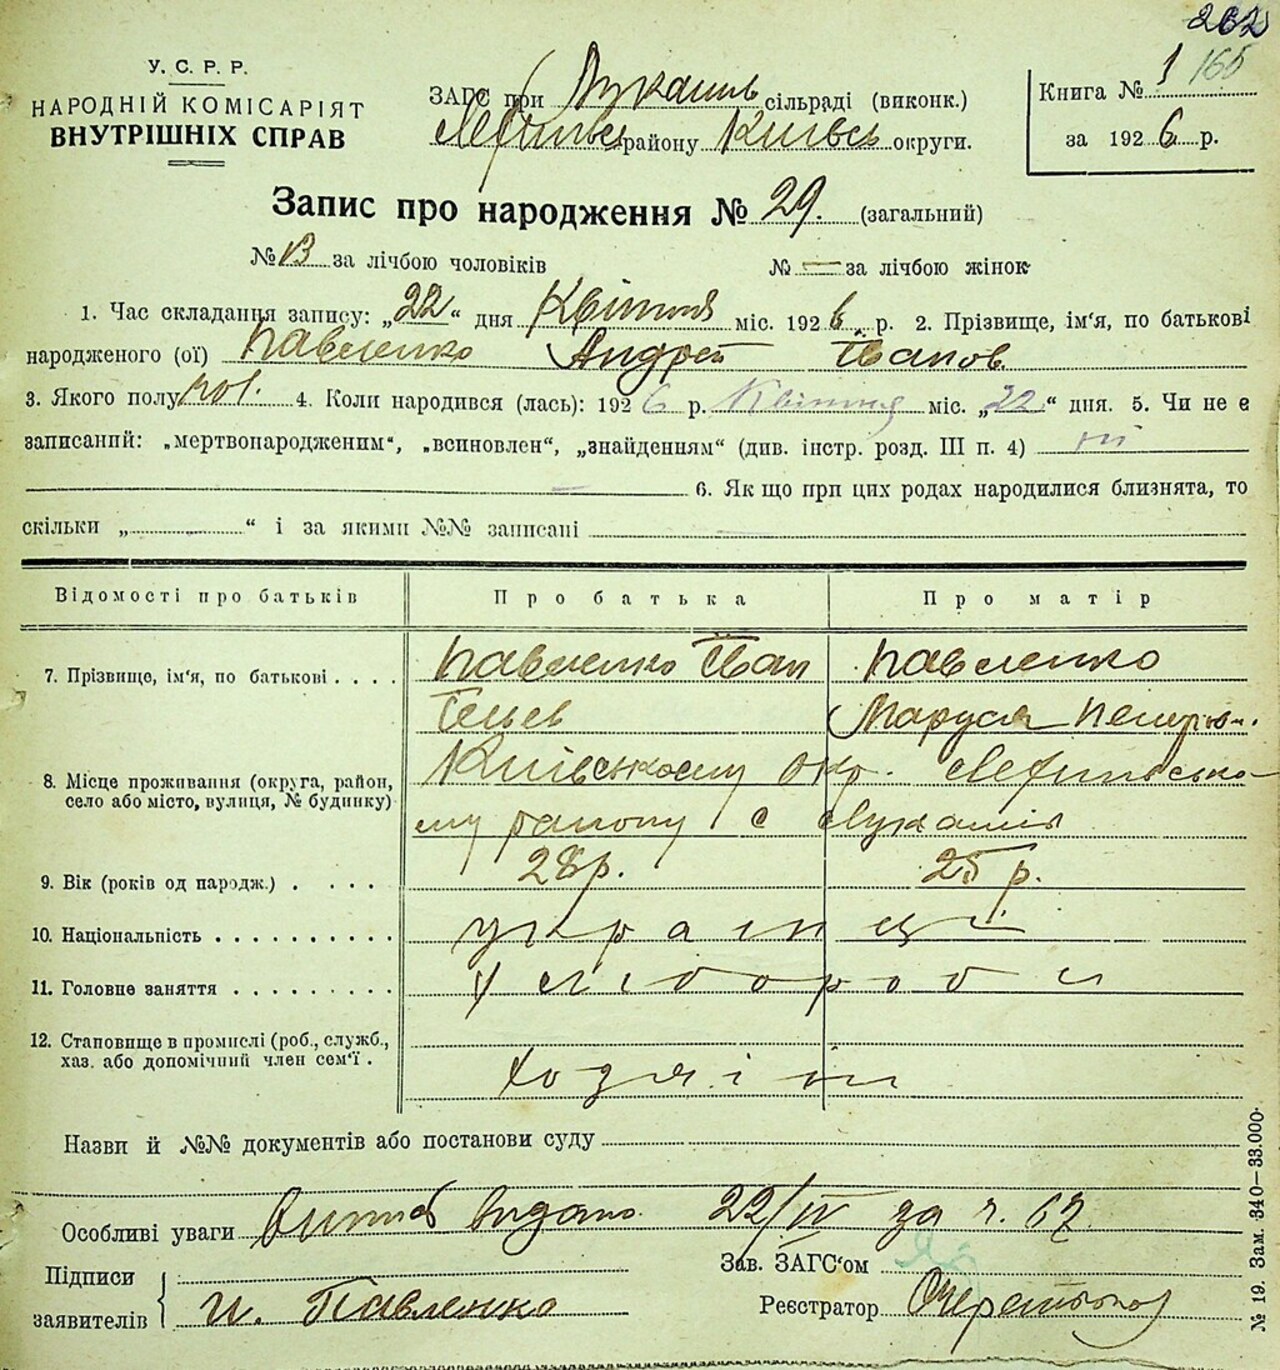 262
165
У. С. Р. Р.
НАРОДНІЙ КОМІСАРІЯТ
ВНУТРІШНІХ СПРАВ
ЗАГС при Лукашів сільраді (виконк.)
району Київсь округи.
Книга № 1
за 1926 р.
Запис про народження № 29. (загальний)
№ 13 за лічбою чоловіків № — за лічбою жінок
1. Час складання запису: „22“ дня Квітня міс. 1926 р. 2. Прізвище, ім'я, по батькові
народженого (ої) Павленко Андрей Іванов.
3. Якого полу чол. 4. Коли народився (лась): 1926 р. Квітня міс. „22“ дня. 5. Чи не є
записаний: „мертвонародженим“, „всиновлен“, „знайденням“ (див. інстр. розд. III п. 4) ні
— 6. Як що при цих родах народилися близнята, то
скільки „ “ і за якими №№ записані
Відомості про батьків Про батька Про матір
7. Прізвище, ім'я, по батькові . . . . Павленко Іван Павленко
Маруся
8. Місце проживання (округа, район, Київському окр.
село або місто, вулиця, № будинку) му району с Лукашів
9. Вік (років од народж.) . . . . 28 р. 25 р.
10. Національність . . . . . . . . . . українці
11. Головне заняття . . . . . . . . . хлібороби
12. Становище в промислі (роб., служб.,
хаз. або допомічний член сем'ї .
Назви й №№ документів або постанови суду
Особливі уваги видано 22/IV за ч. 67
Підписи
заявителів И. Павленко
Зав. ЗАГС'ом
Реєстратор
№ 19. Зам. 340—33.000.